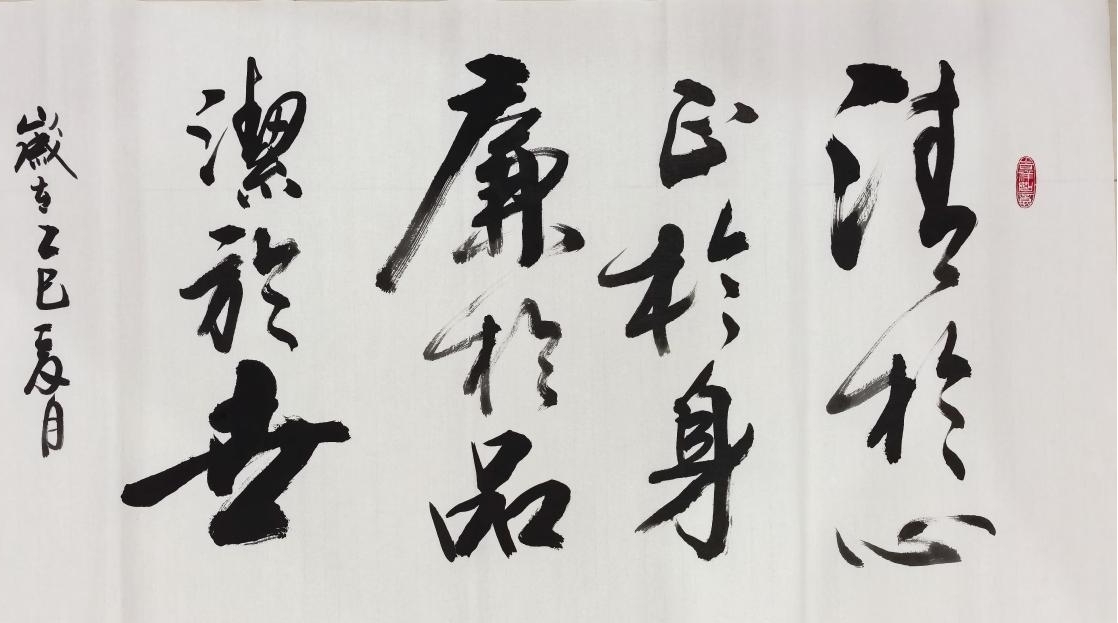 清於心
正於身
廉於品
潔於世
歲在乙巳夏月